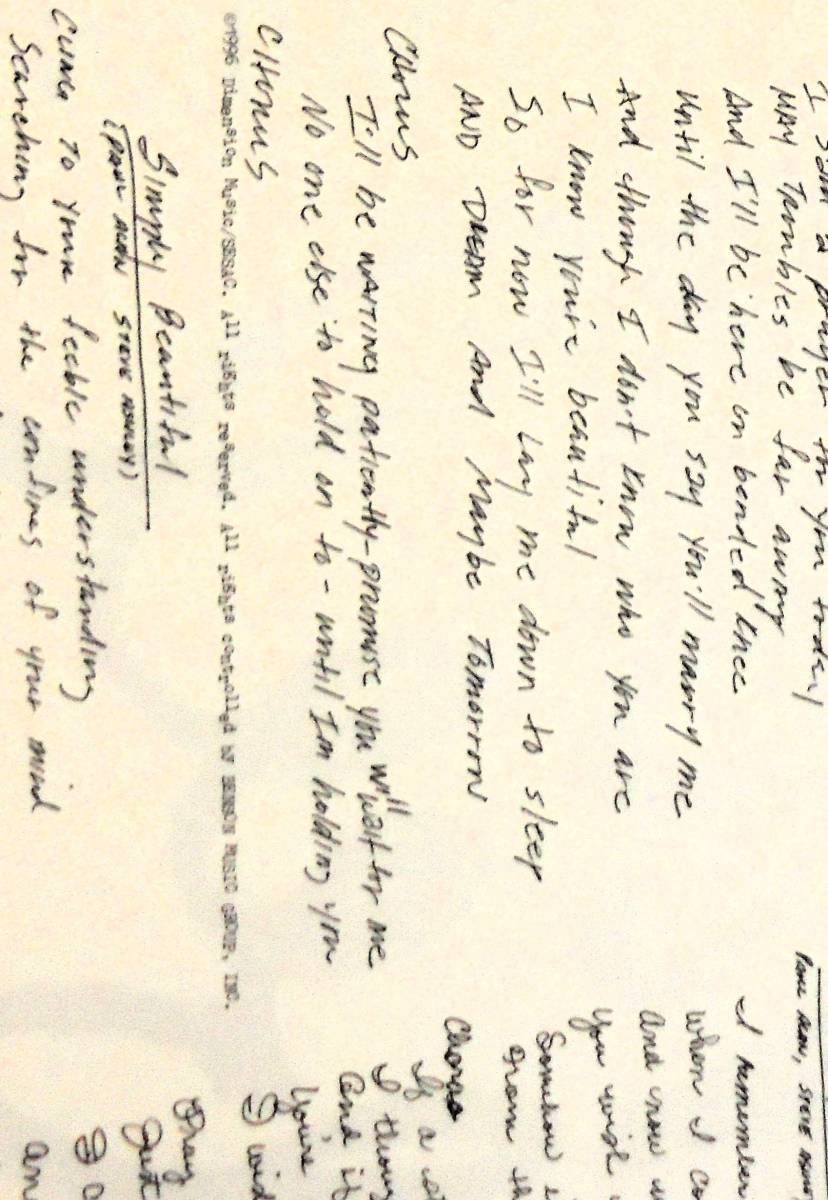 I said a prayer for you today
MAY Troubles be far away
And I'll be here on bended knee
Until the day you say you'll marry me
And though I don't know who you are
I know you're beautiful
So for now I'll lay me down to sleep
AND DREAM AND Maybe Tomorrow
CHORUS
I'll be WAITING patiently-promise you will wait for me
No one else to hold on to - until I'm holding you
CHORUS
©1996 Dimension Music/SESAC. All rights reserved. All rights controlled by BENSON MUSIC GROUP, INC.
Simply Beautiful
CLING TO your feeble understanding
Searching for the confines of your mind
I remember
When I
and now
You wish
Somehow
From
Chorus
If a
I
and if
You're
I
Pray
Just
I
an